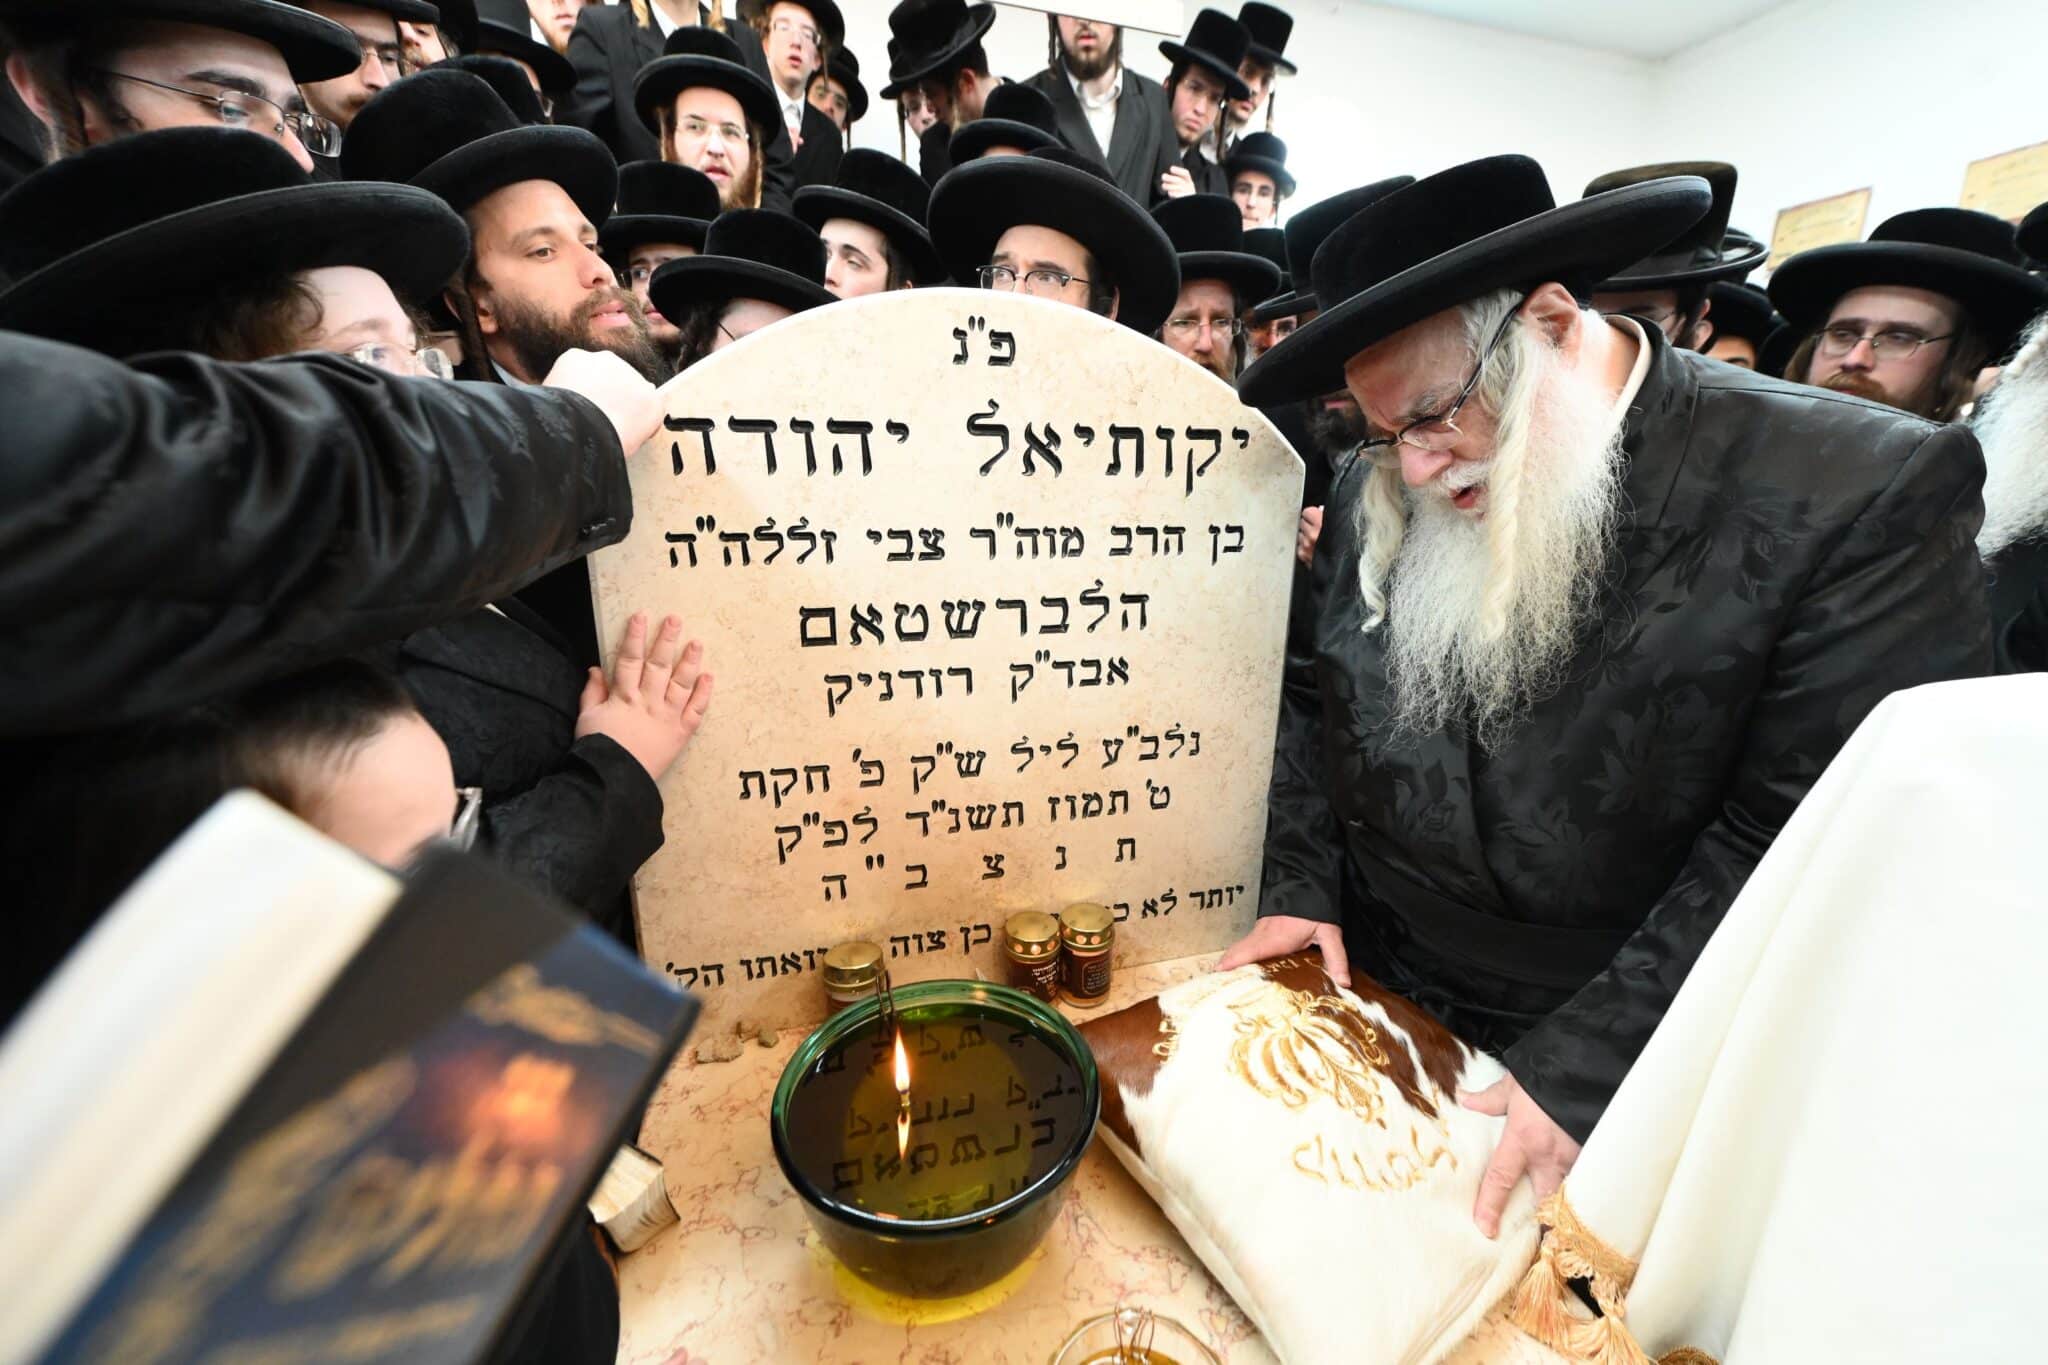 פ"נ
יקותיאל יהודה
בן הרב מוה"ר צבי זללה"ה
הלברשטאם
אבד"ק רודניק
נלב"ע ליל ש"ק פ' חקת
ט' תמוז תשנ"ד לפ"ק
ת נ צ ב "ה
יותר לא
כן צוה הק'